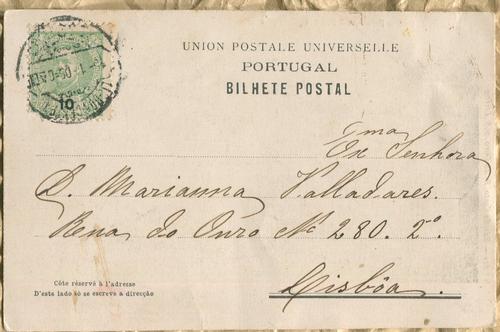 UNION POSTALE UNIVERSELLE
PORTUGAL
BILHETE POSTAL
10
Exma
Senhora
D. Marianna Valladares.
Rua do Ouro Nº 280. 2.º
Lisbôa.
Côte réservé à l'adresse
D'este lado só se escreve a direcção